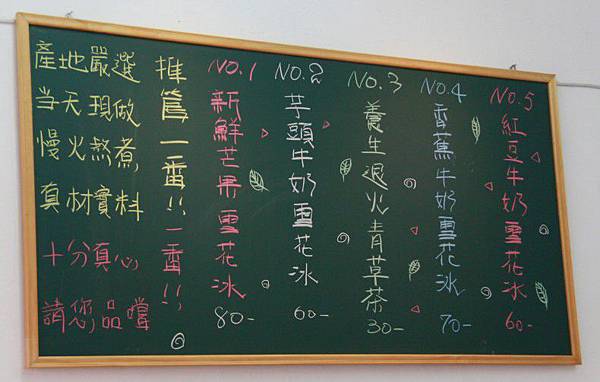 產地嚴選
當天現做
慢火熬煮
真材實料
十分真心
請您品嚐
推薦一番!!一番!!
NO.1
新鮮芒果雪花冰
80-
NO.2
芋頭牛奶雪花冰
60-
NO.3
養生退火青草茶
30-
NO.4
香蕉牛奶雪花冰
70-
NO.5
紅豆牛奶雪花冰
60-